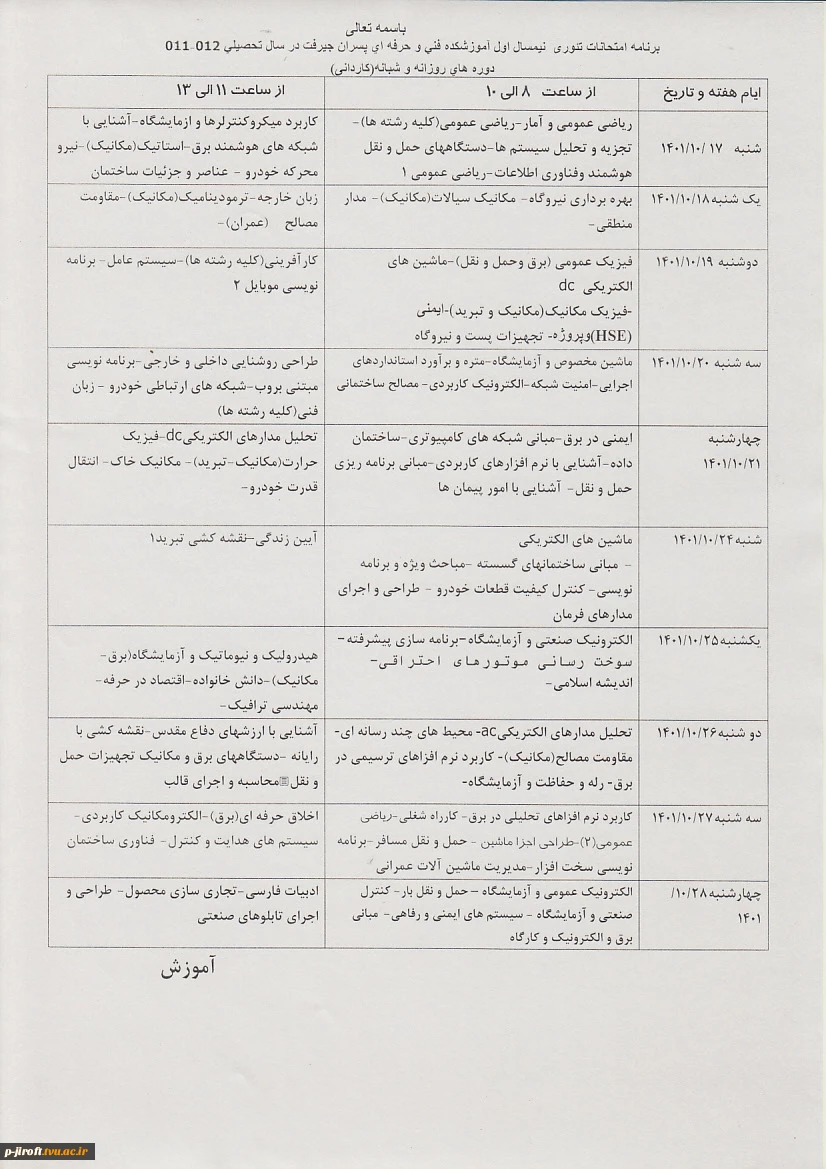 باسمه تعالی
برنامه امتحانات تئوری نیمسال اول آموزشکده فني و حرفه اي پسران جیرفت در سال تحصیلي 012-011
دوره هاي روزانه و شبانه(کاردانی)
ایام هفته و تاریخ
از ساعت ۸ الی ۱۰
از ساعت ۱۱ الی ۱۳
شنبه ۱۷ /۱۴۰۱/۱۰
ریاضی عمومی و آمار-ریاضی عمومی(کلیه رشته ها)-
تجزیه و تحلیل سیستم ها-دستگاههای حمل و نقل
هوشمند وفناوری اطلاعات-ریاضی عمومی ۱
کاربرد میکروکنترلرها و ازمایشگاه-آشنایی با
شبکه های هوشمند برق-استاتیک(مکانیک)-نیرو
محرکه خودرو - عناصر و جزئیات ساختمان
یک شنبه۱۴۰۱/۱۰/۱۸
بهره برداری نیروگاه- مکانیک سیالات(مکانیک)- مدار
منطقی-
زبان خارجه-ترمودینامیک(مکانیک)-مقاومت
مصالح (عمران)-
دوشنبه ۱۴۰۱/۱۰/۱۹
فیزیک عمومی (برق وحمل و نقل)-ماشین های
الکتریکی dc
-فیزیک مکانیک(مکانیک و تبرید)-ایمنی
(HSE)وپروژه- تجهیزات پست و نیروگاه
کارآفرینی(کلیه رشته ها)-سیستم عامل- برنامه
نویسی موبایل ۲
سه شنبه ۱۴۰۱/۱۰/۲۰
ماشین مخصوص و آزمایشگاه-متره و برآورد استانداردهای
اجرایی-امنیت شبکه-الکترونیک کاربردی- مصالح ساختمانی
طراحی روشنایی داخلی و خارجی-برنامه نویسی
مبتنی بروب-شبکه های ارتباطی خودرو - زبان
فنی(کلیه رشته ها)
چهارشنبه
۱۴۰۱/۱۰/۲۱
ایمنی در برق-مبانی شبکه های کامپیوتری-ساختمان
داده-آشنایی با نرم افزارهای کاربردی-مبانی برنامه ریزی
حمل و نقل- آشنایی با امور پیمان ها
تحلیل مدارهای الکتریکیdc-فیزیک
حرارت(مکانیک-تبرید)- مکانیک خاک- انتقال
قدرت خودرو-
شنبه۱۴۰۱/۱۰/۲۴
ماشین های الکتریکی
- مبانی ساختمانهای گسسته -مباحث ویژه و برنامه
نویسی- کنترل کیفیت قطعات خودرو - طراحی و اجرای
مدارهای فرمان
آیین زندگی-نقشه کشی تبرید۱
یکشنبه۱۴۰۱/۱۰/۲۵
الکترونیک صنعتی و آزمایشگاه-برنامه سازی پیشرفته-
سوخت رسانی موتورهای احتراقی-
اندیشه اسلامی-
هیدرولیک و نیوماتیک و آزمایشگاه(برق-
مکانیک)-دانش خانواده-اقتصاد در حرفه-
مهندسی ترافیک-
دو شنبه۱۴۰۱/۱۰/۲۶
تحلیل مدارهای الکتریکیac- محیط های چند رسانه ای-
مقاومت مصالح(مکانیک)- کاربرد نرم افزاهای ترسیمی در
برق- رله و حفاظت و آزمایشگاه-
آشنایی با ارزشهای دفاع مقدس-نقشه کشی با
رایانه -دستگاههای برق و مکانیک تجهیزات حمل
و نقل محاسبه و اجرای قالب
سه شنبه۱۴۰۱/۱۰/۲۷
کاربرد نرم افزاهای تحلیلی در برق- کارراه شغلی-ریاضی
عمومی(۲)-طراحی اجزا ماشین - حمل و نقل مسافر-برنامه
نویسی سخت افزار-مدیریت ماشین آلات عمرانی
اخلاق حرفه ای(برق)-الکترومکانیک کاربردی-
سیستم های هدایت و کنترل- فناوری ساختمان
چهارشنبه۱۰/۲۸/
۱۴۰۱
الکترونیک عمومی و آزمایشگاه -حمل و نقل بار-کنترل
صنعتی و آزمایشگاه - سیستم های ایمنی و رفاهی- مبانی
برق و الکترونیک و کارگاه
ادبیات فارسی-تجاری سازی محصول- طراحی و
اجرای تابلوهای صنعتی
آموزش
p-jiroft.tvu.ac.ir